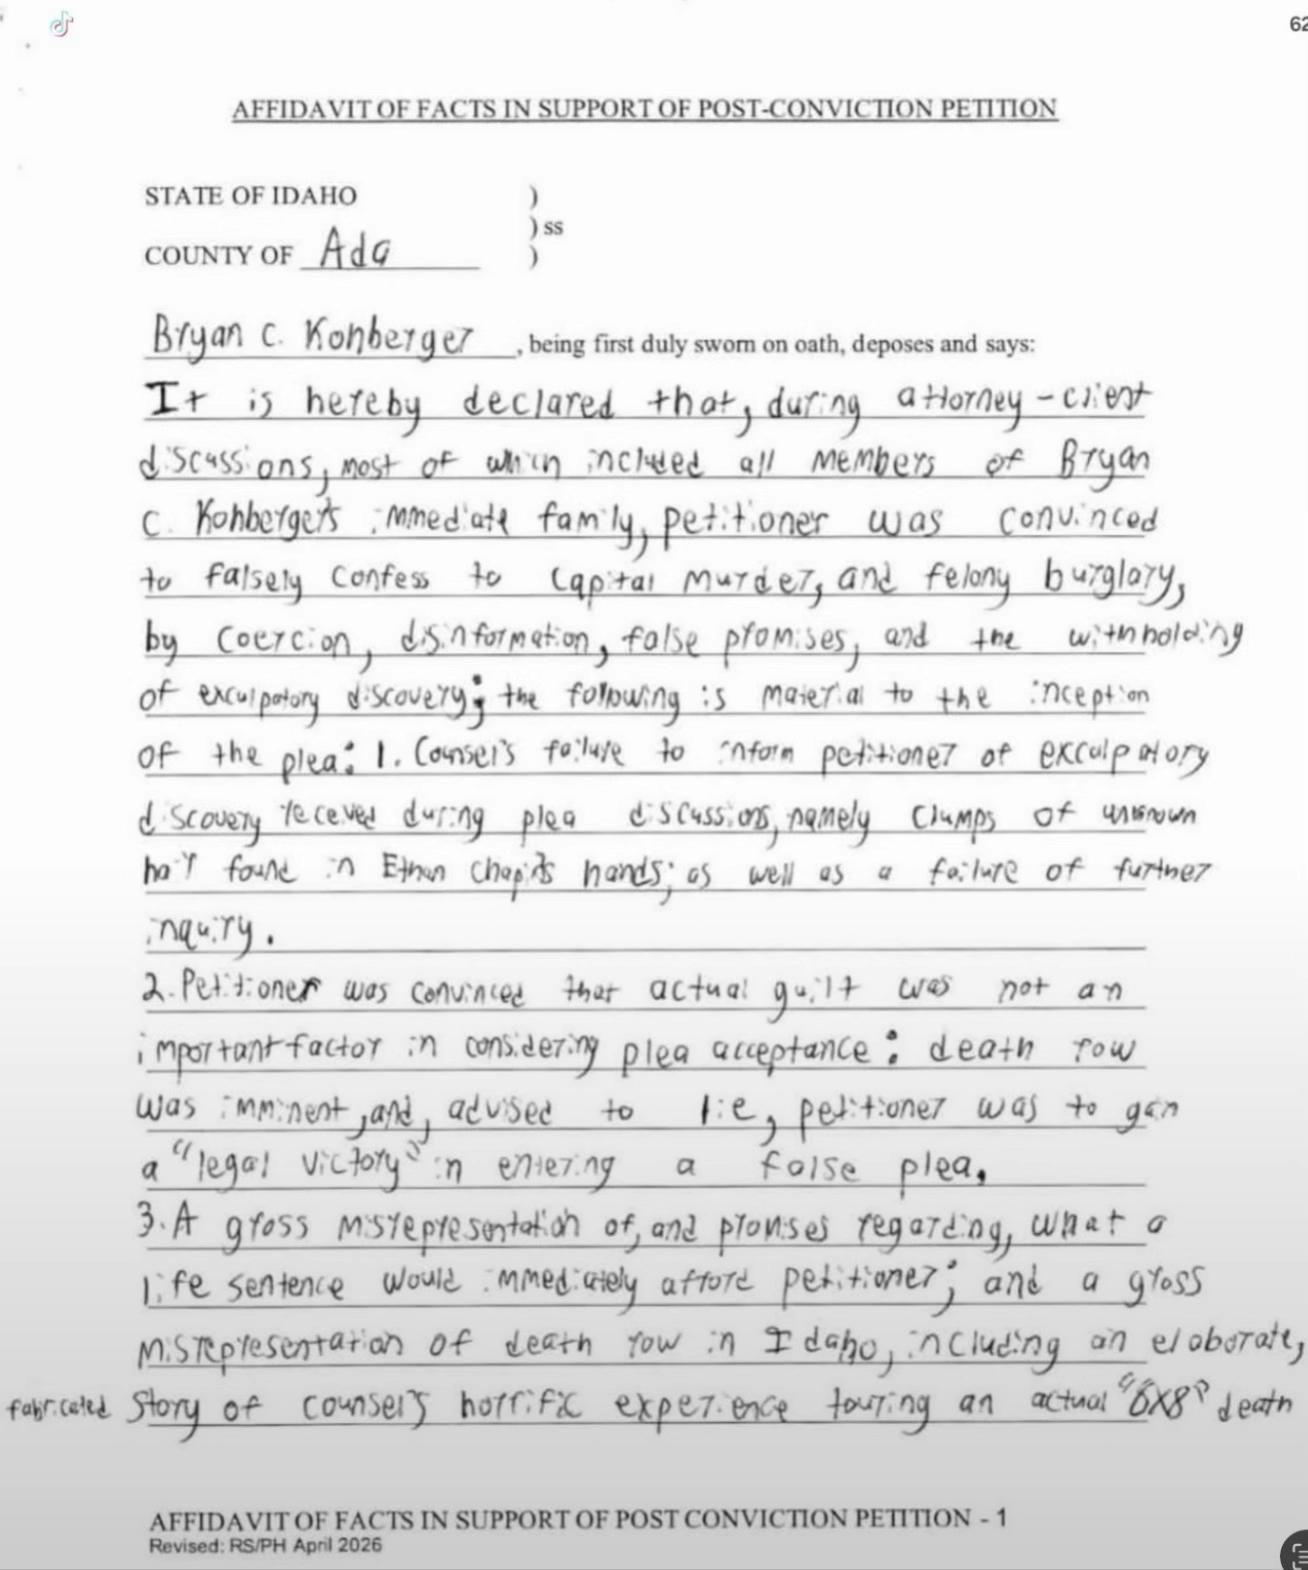 62
AFFIDAVIT OF FACTS IN SUPPORT OF POST-CONVICTION PETITION
STATE OF IDAHO )
) ss
COUNTY OF Ada )
Bryan C. Kohberger, being first duly sworn on oath, deposes and says:
It is hereby declared that, during attorney-client
discussions, most of which included all members of Bryan
C. Kohberger's immediate family, petitioner was convinced
to falsely confess to capital murder, and felony burglary,
by coercion, disinformation, false promises, and the withholding
of exculpatory discovery; the following is material to the inception
of the plea: 1. Counsel's failure to inform petitioner of exculpatory
discovery received during plea discussions, namely clumps of unknown
hair found in Ethan Chapin's hands; as well as a failure of further
inquiry.
2. Petitioner was convinced that actual guilt was not an
important factor in considering plea acceptance: death row
was imminent, and, advised to lie, petitioner was to gain
a "legal victory" in entering a false plea.
3. A gross misrepresentation of, and promises regarding, what a
life sentence would immediately afford petitioner; and a gross
misrepresentation of death row in Idaho, including an elaborate,
fabricated story of counsel's horrific experience touring an actual "6X8" death
AFFIDAVIT OF FACTS IN SUPPORT OF POST CONVICTION PETITION - 1
Revised: RS/PH April 2026